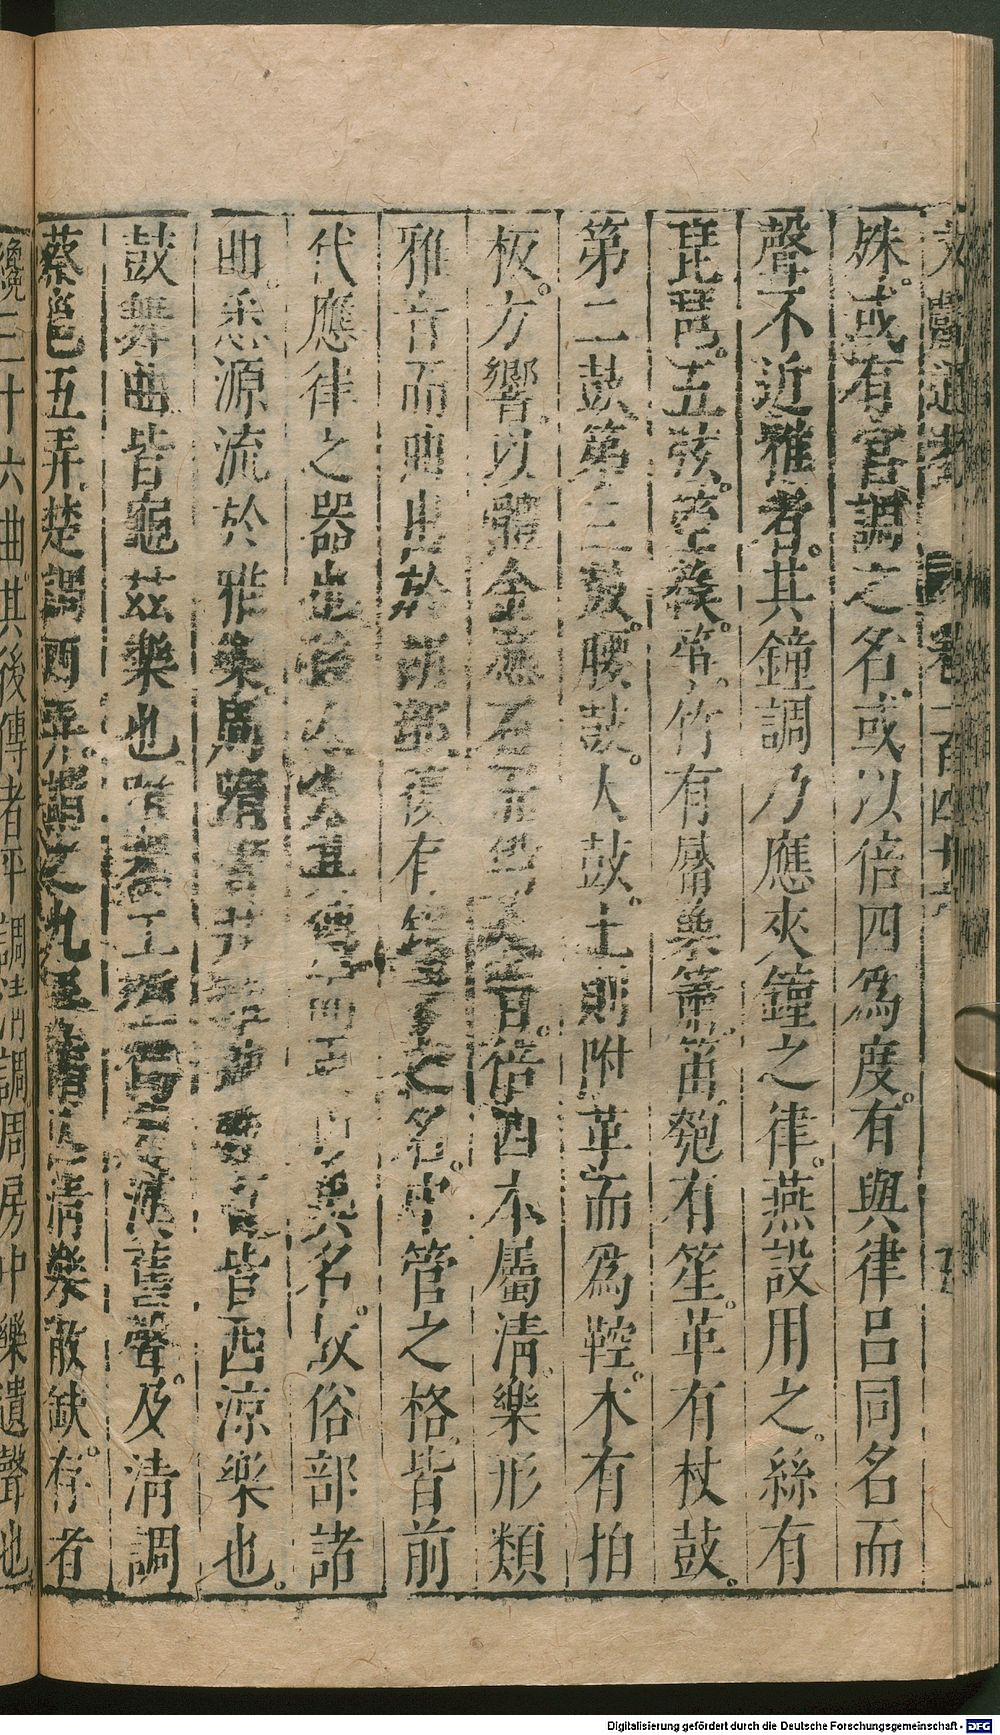 文獻通考 卷一百四十六
殊。或有宮調之名。或以倍四爲度。有與律呂同名而
聲不近雅者。其鐘調乃應夾鐘之律。燕設用之。絲有
琵琶。五弦。箜篌。箏。竹有觱篥。簫。笛。匏有笙。革有杖鼓。
第二鼓。第三鼓。腰鼓。大鼓。土則附革而爲鞚。木有拍
板。方響。以體金應石而備八音。倍四本屬淸樂形類
雅音而曲出於胡部。復有銀字之名。中管之格。皆前
代應律之器也後人失其傳而更以異名。故俗部諸
曲。悉源流於雅樂周隋 皆西涼樂也。
鼓舞曲皆龜茲樂也。唯琴工猶 漢舊聲。及淸調
蔡邕五弄楚調四弄。謂之九弄隋亡淸樂散缺。存者
纔三十六曲其後傳者平調淸調周房中樂遺聲也
Digitalisierung gefördert durch die Deutsche Forschungsgemeinschaft - DFG